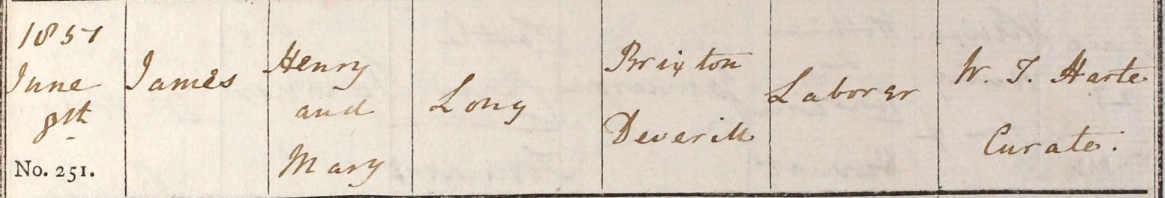 1851
June
8th
No. 251.
James
Henry
and
Mary
Long
Brixton
Deverill
Laborer
W. T. Harte
Curate.